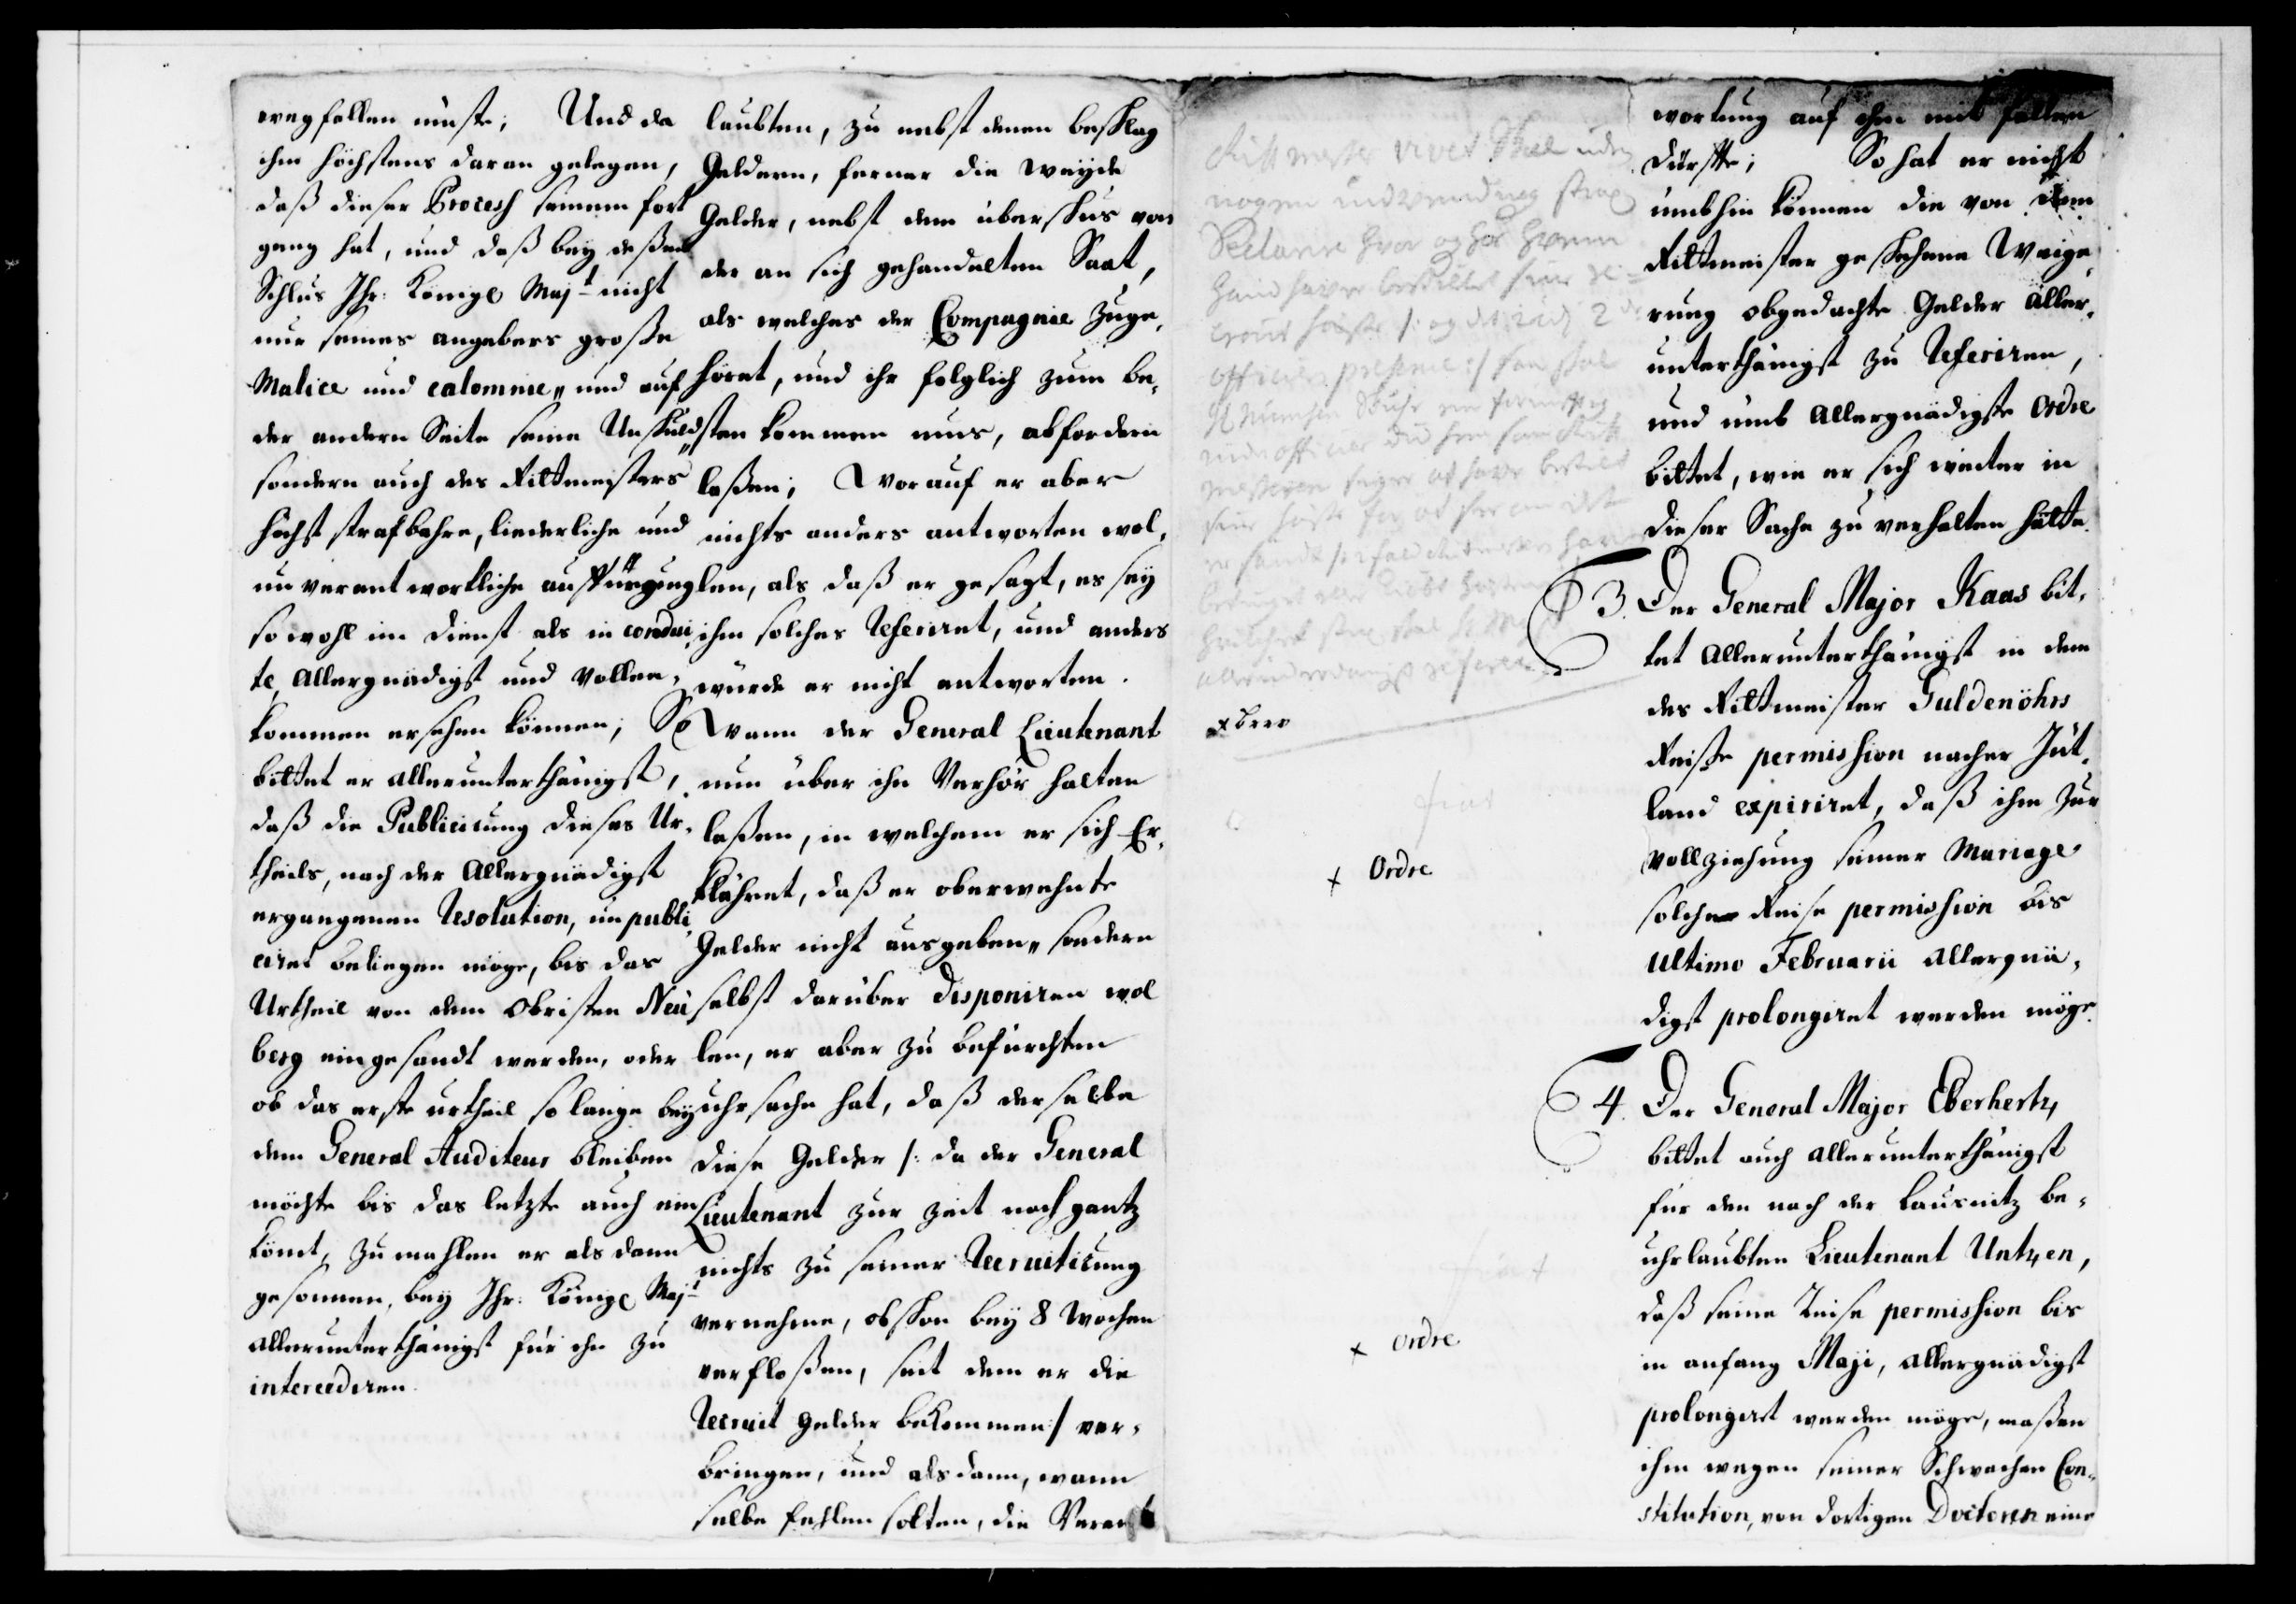 wegfallen müste; Und da
ihm höchstens daran gelegen,
daß dieser Process seinem fort
gang hat, und daß bey deßen
Schlus Ihr: Königl Majt nicht
nur seines angebers große
Malice und calomnie, und auf
der andern Seite seine Unschuld,
sondern auch des Rittmeisters
höchst strafbahre, liederliche und
unverantwortliche aufführung
so wohl im Dienst als in condui,
te, Allergnädigst und vollen,
kommen ersehen können; So
bittet er allerunterthänigst,
daß die Publicirung dieses Ur,
theils, nach der Allergnädigst
ergangenen Resolution, unpubli
ciret beliegen möge, bis das
Urtheil von dem Obristen Neu
berg eingesandt werden, oder
ob das erste urtheil so lange bey
dem General Auditeur bleiben
möchte bis das letzte auch ein
kömt, zumahlen er als dann
gesonnen, bey Ihr: Königl Majt
allerunterthänigst für ihn zu
intercediren.
laubten, zu nebst denen beschlag
Geldern, ferner die Weyde
Gelder, nebst dem überschus von
der an sich gehandelten Saat,
als welches der Compagnie zuge,
höret, und ihr folglich zum be,
sten kommen mus, abfordern
laßen; Worauf er aber
nichts anders antworten wol,
len, als daß er gesagt, es sey
ihm solches Referiret, und anders
würde er nicht antworten.
Wann der General Lieutenant
nun über ihn Verhör halten
laßen, in welchem er sich Er,
klähret, daß er oberwehnte
Gelder nicht ausgeben, sondern
selbst darüber Disponiren wol
len, er aber zu befürchten
uhrsache hat, daß derselbe
diese Gelder /: da der General
Lieutenant zur zeit noch gantz
nichts zu seiner Recruitirung
vernehme, obschon bey 8 Wochen
verfloßen, seit dem er die
Recruit gelder bekommen:/ ver,
bringen, und alsdann, wann
selbe fehlen solten, die Verant
wortung auf ihm mit fallen
dürffte; So hat er nicht
umbhin können die von dem
Rittmeister geschehene Weige,
rung obgedachte Gelder Aller,
unterthänigst zu Referiren,
und umb Allergnädigste Ordre
bittet, wie er sich weiter in
dieser Sache zu verhalten hätte.
x brev
3. Der General Major Kaas bit,
tet Allerunterthänigst in dem
des Rittmeister Guldenöhrs
Reise permission nacher Jüt,
land expiriret, daß ihm zur
Vollziehung seiner Mariage
solche Reise permission bis
ultimo Februarii Allergnä,
digst prolongiret werden möge.
x Ordre
4. Der General Major Eberhertz,
bittet auch allerunterthänigst
für den nach der Lausnitz be,
uhrlaubten Lieutenant Untzen,
daß seine Reise permission bis
in anfang Maji, allergnädigst
prolongiret werden möge, maßen
ihm wegen seiner Schwachen Con,
stitution, von dortigen Doctoren eine
x Ordre
fiat
fiat